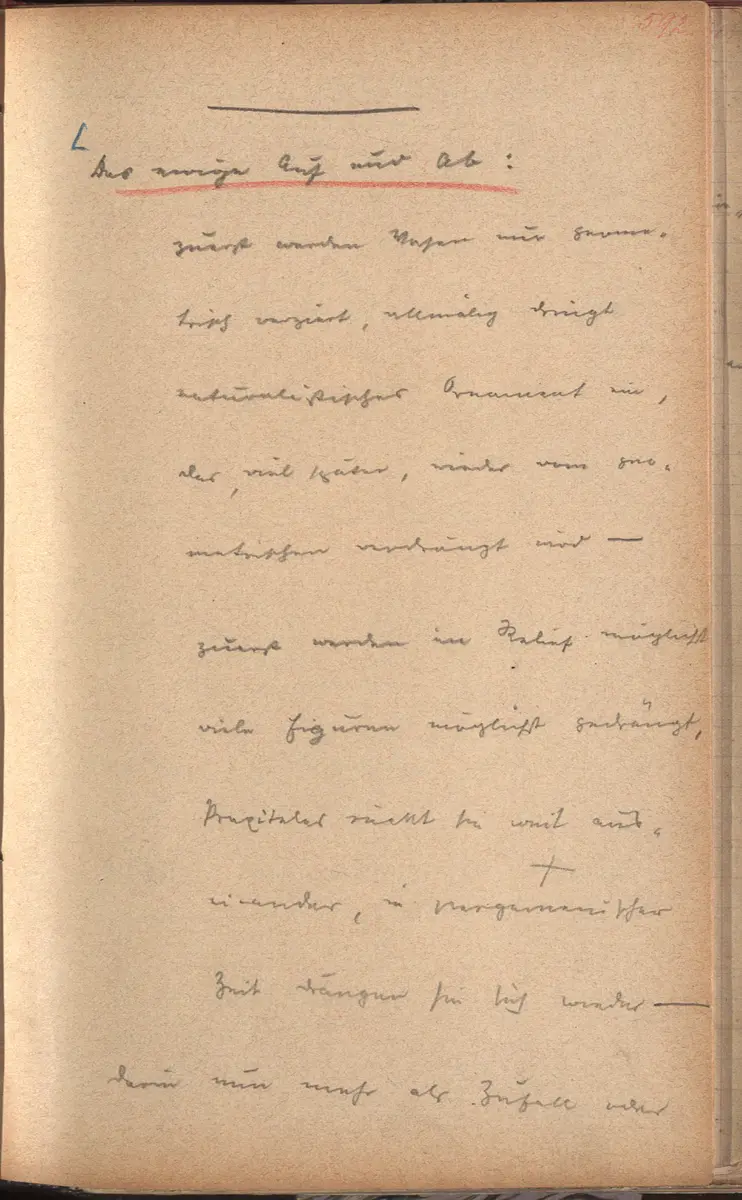 592
L
Das ewige Auf und Ab:
zuerst werden Vasen nur geome-
trisch verziert, allmälig dringt
naturalistisches Ornament ein,
das, viel später, wieder vom geo-
metrischen verdrängt wird —
zuerst werden im Relief möglichst
viele Figuren möglichst gedrängt,
Praxiteles rückt sie weit aus-
einander, in pergamenischer
Zeit drängen sie sich wieder —
darin nun mehr als Zufall oder